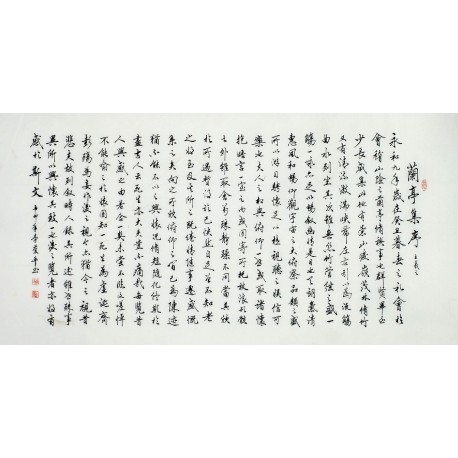 蘭亭集序 王羲之
永和九年歲在癸丑暮春之初會於
會稽山陰之蘭亭脩禊事也群賢畢至
少長咸集此地有崇山峻嶺茂林脩竹
又有清流激湍映帶左右引以為流觴
曲水列坐其次雖無絲竹管弦之盛一
觴一詠亦足以暢敘幽情是日也天朗氣清
惠風和暢仰觀宇宙之大俯察品類之盛
所以遊目騁懷足以極視聽之娛信可
樂也夫人之相與俯仰一世或取諸懷
抱晤言一室之內或因寄所託放浪形骸
之外雖取舍萬殊靜躁不同當其欣
於所遇暫得於己快然自足不知老
之將至及其所之既倦情隨事遷感慨
係之矣向之所欣俯仰之間已為陳迹
猶不能不以之興懷況脩短隨化終期於
盡古人云死生亦大矣豈不痛哉每覽昔
人興感之由若合一契未嘗不臨文嗟悼
不能喻之於懷固知一死生為虛誕齊
彭殤為妄作後之視今亦猶今之視昔
悲夫故列敘時人錄其所述雖世殊事
異所以興懷其致一也後之覽者亦將有
感於斯文 辛卯年